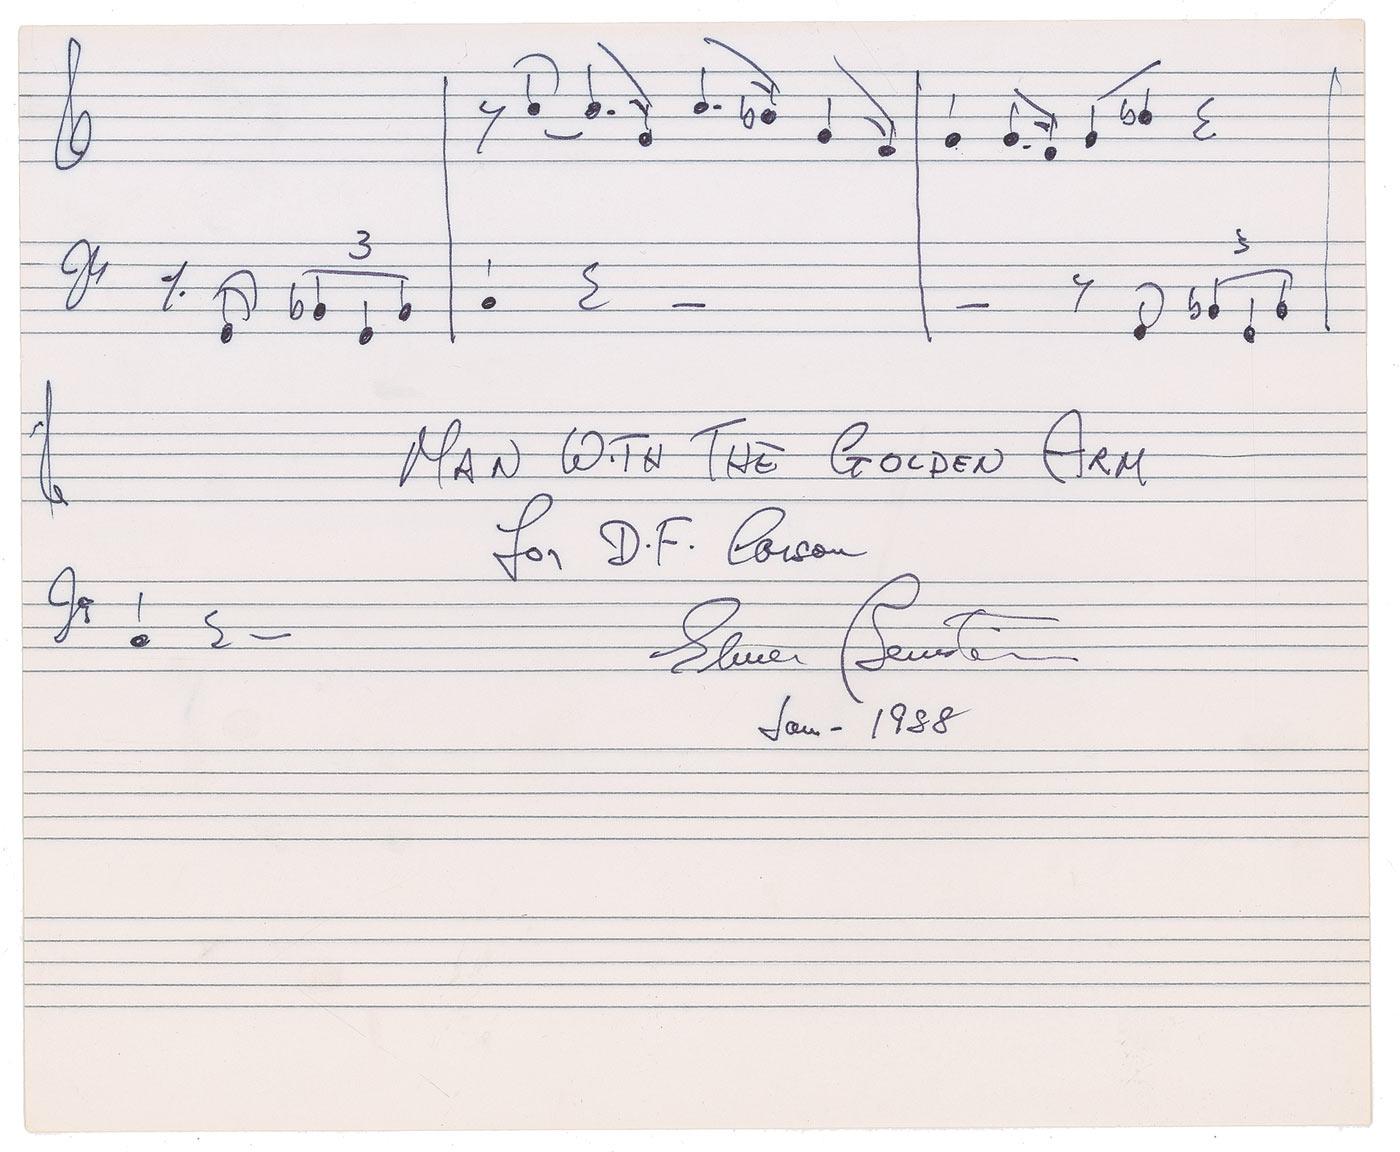 3
3
MAN WITH THE GOLDEN ARM
for D.F. Corson
Elmer Bernstein
Jan - 1988